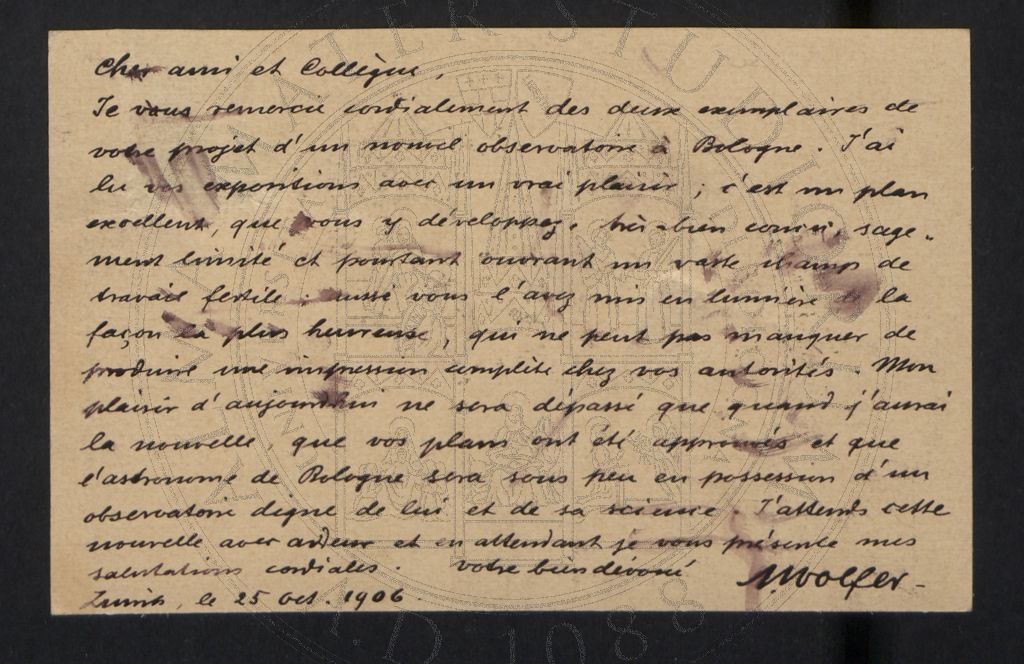 Cher ami et Collègue,
Je vous remercie cordialement des deux exemplaires de
votre projet d'un nouvel observatoire à Bologne. J'ai
lu vos expositions avec un vrai plaisir; c'est un plan
excellent, que vous y développez, très-bien conçu, sage-
ment limité et pourtant ouvrant un vaste champ de
travail fertile; aussi vous l'avez mis en lumière de la
façon la plus heureuse, qui ne peut pas manquer de
produire une impression complète chez vos autorités. Mon
plaisir d'aujourd'hui ne sera dépassé que quand j'aurai
la nouvelle, que vos plans ont été approuvés et que
l'astronome de Bologne sera sous peu en possession d'un
observatoire digne de lui et de sa science. J'attends cette
nouvelle avec ardeur et en attendant je vous présente mes
salutations cordiales. votre bien dévoué A. Wolfer-
Zurich, le 25 oct. 1906
A.D. 1088